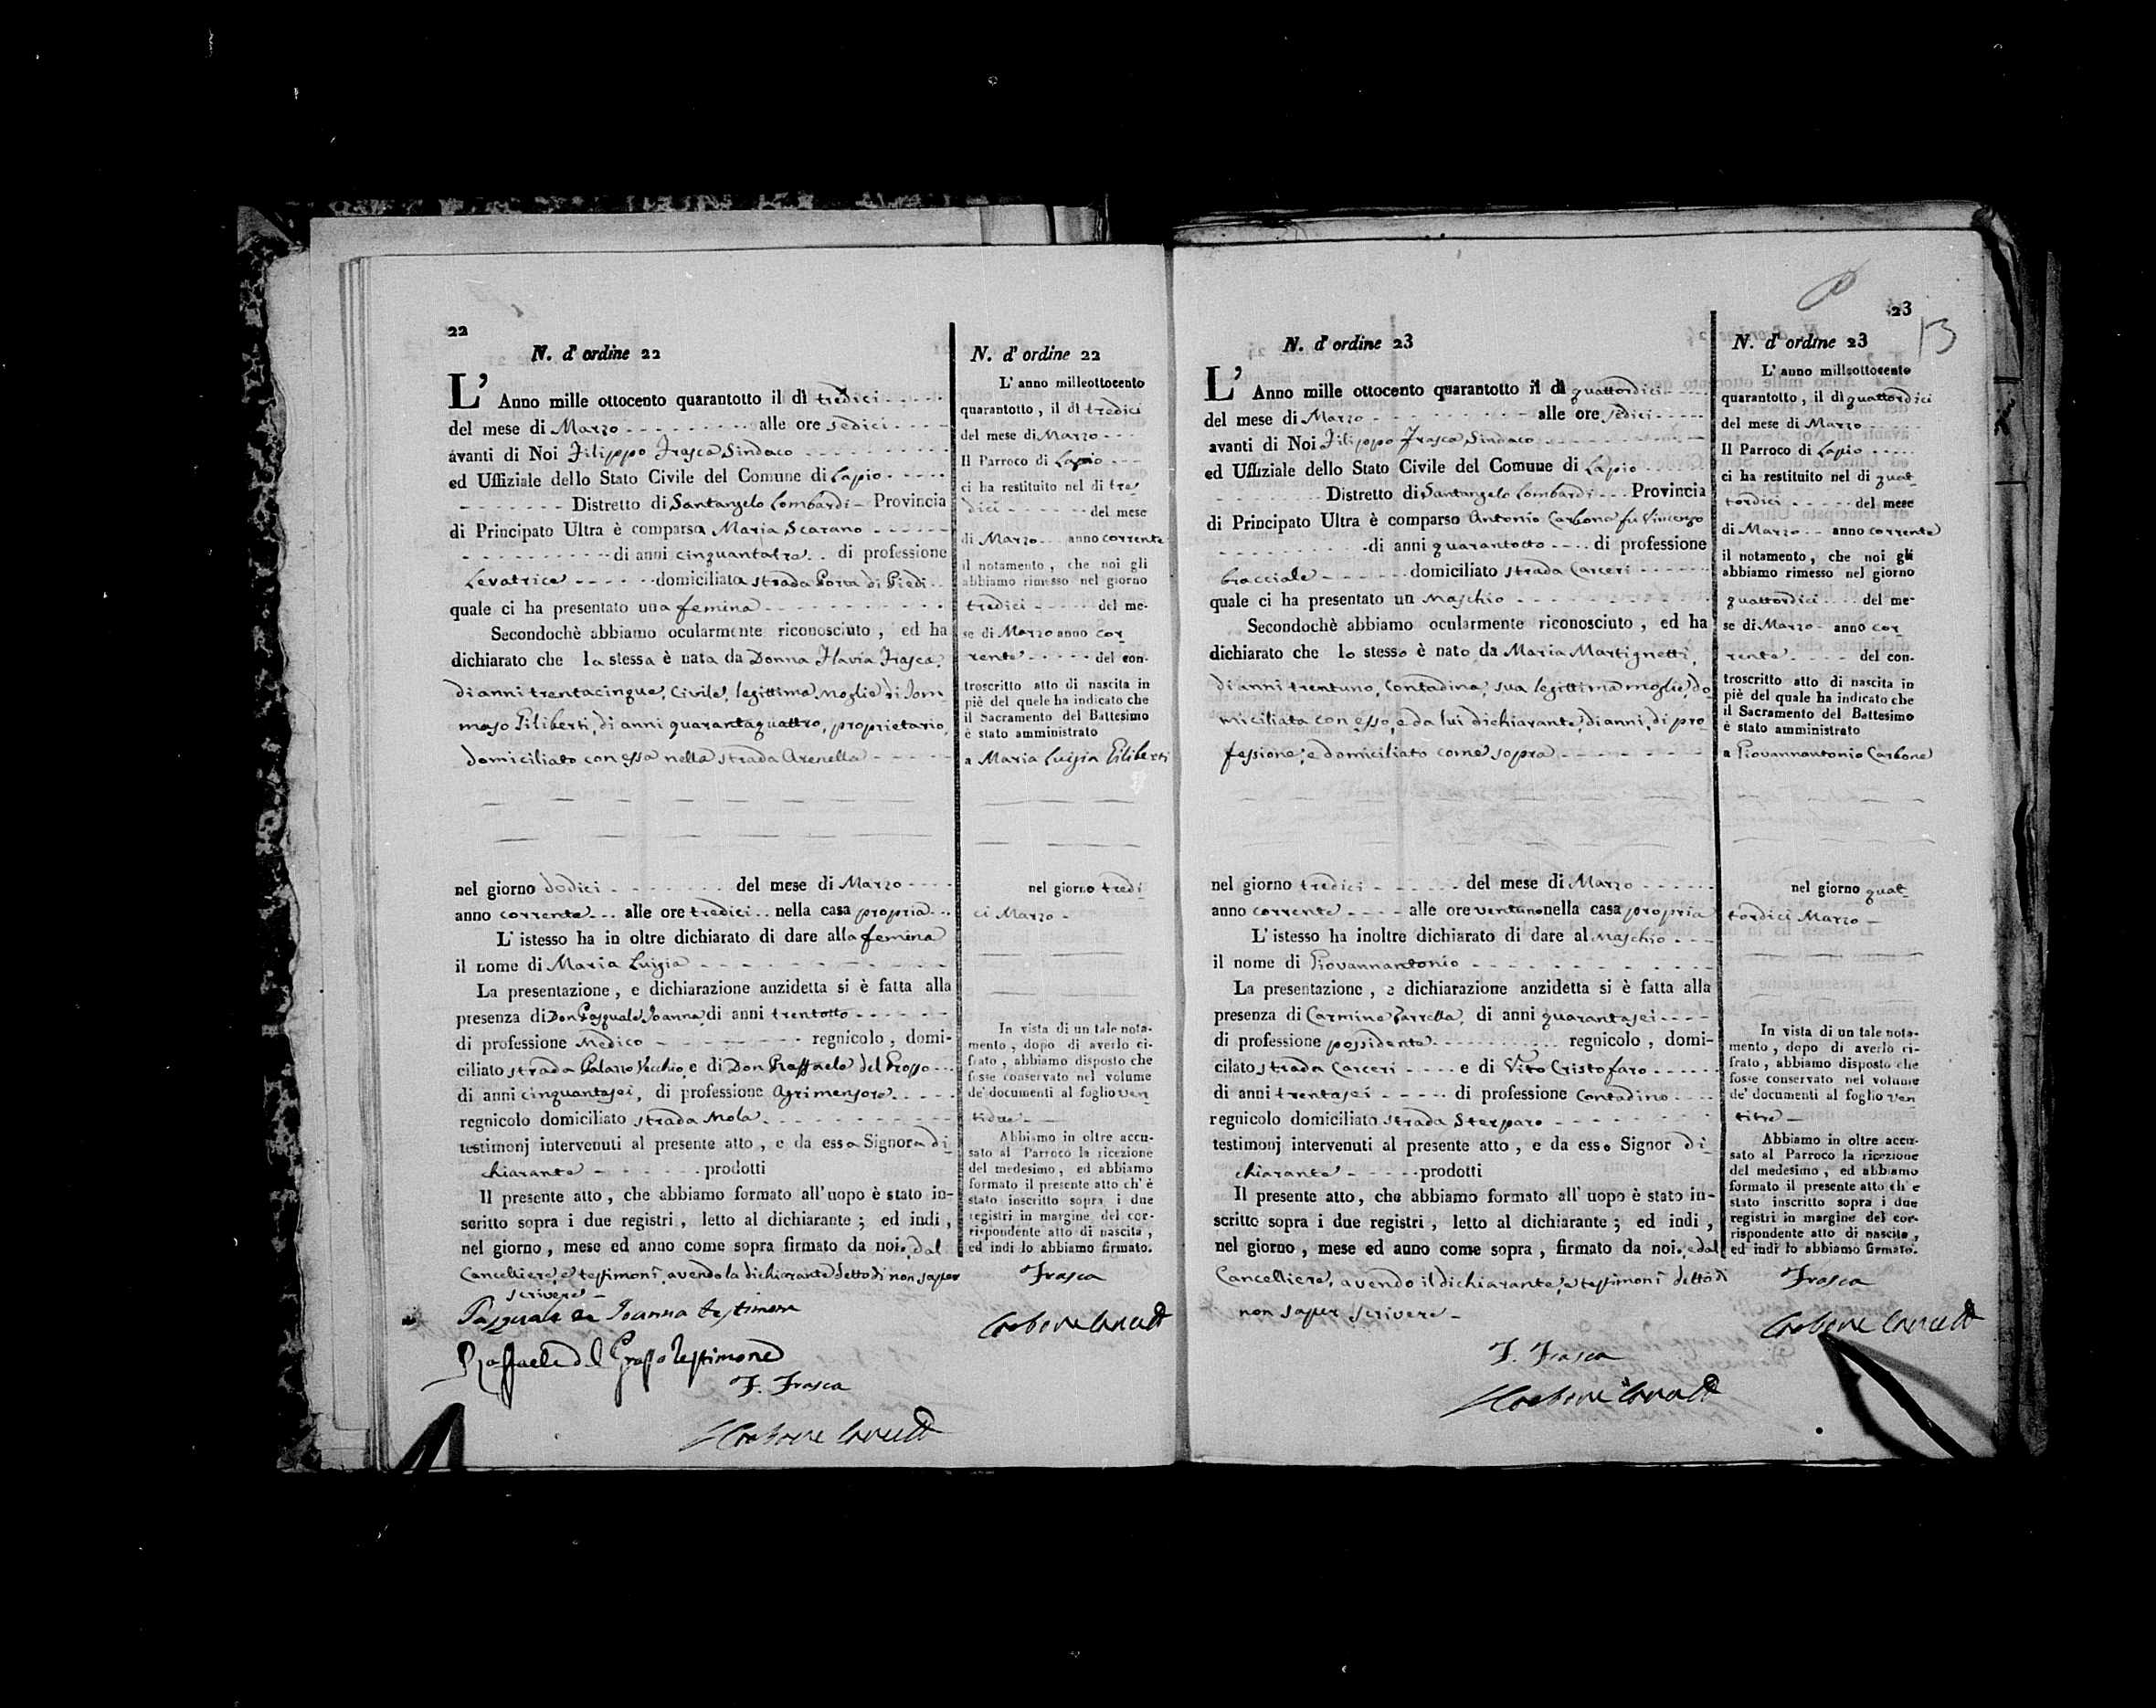 22
N. d' ordine 22
L' Anno mille ottocento quarantotto il dì tredici
del mese di Marzo alle ore sedici
avanti di Noi Filippo Frasca Sindaco
ed Uffiziale dello Stato Civile del Comune di Lapio
Distretto di Santangelo Lombardi Provincia
di Principato Ultra è comparsa Maria Scarano
di anni cinquantatre di professione
Levatrice domiciliata strada Porta di Piedi
quale ci ha presentato una femina
Secondochè abbiamo ocularmente riconosciuto , ed ha
dichiarato che la stessa è nata da Donna Flavia Frasca,
di anni trentacinque, Civile, legittima moglie di Tom
maso Filiberti, di anni quarantaquattro, proprietario,
domiciliato con essa nella strada Arenella
nel giorno dodici del mese di Marzo
anno corrente alle ore tredici nella casa propria
L' istesso ha in oltre dichiarato di dare alla femina
il nome di Maria Luigia
La presentazione , e dichiarazione anzidetta si è fatta alla
presenza di Don Pasquale Joanna, di anni trentotto
di professione Medico regnicolo , domi-
ciliato strada Palazzo Vecchio, e di Don Raffaele del Grosso
di anni cinquantasei, di professione Agrimensore
regnicolo domiciliato strada Mola
testimonj intervenuti al presente atto , e da essa Signora di
chiarante prodotti
Il presente atto , che abbiamo formato all' uopo è stato in-
scritto sopra i due registri , letto al dichiarante ; ed indi ,
nel giorno , mese ed anno come sopra firmato da noi, dal
Cancelliere, e testimonî, avendo la dichiarante detto di non saper
scrivere
Pasquale de Joanna testimone
Raffaele del Grosso testimone
F. Frasca
Carbone
N. d' ordine 22
L' anno milleottocento
quarantotto , il dì tredici
del mese di Marzo
Il Parroco di Lapio
ci ha restituito nel dì tre
dici del mese
di Marzo anno corrente
il notamento , che noi gli
abbiamo rimesso nel giorno
tredici del me-
se di Marzo anno cor
rente del con-
troscritto atto di nascita in
piè del quele ha indicato che
il Sacramento del Battesimo
è stato amministrato
a Maria Luigia Filiberti
nel giorno tredi
ci Marzo
In vista di un tale nota-
mento , dopo di averlo ci-
frato , abbiamo disposto che
fosse conservato nel volume
de' documenti al foglio ven
tidue
Abbiamo in oltre accu-
sato al Parroco la ricezione
del medesimo , ed abbiamo
formato il presente atto ch' è
stato inscritto sopra i due
registri in margine del cor-
rispondente atto di nascita ,
ed indi lo abbiamo firmato.
Frasca
Carbone
23
13
N. d' ordine 23
L' Anno mille ottocento quarantotto il dì quattordici
del mese di Marzo alle ore sedici
avanti di Noi Filippo Frasca Sindaco
ed Uffiziale dello Stato Civile del Comune di Lapio
Distretto di Santangelo Lombardi Provincia
di Principato Ultra è comparso Antonio Carbone fu Vincenzo
di anni quarantotto di professione
bracciale domiciliato strada Carceri
quale ci ha presentato un Maschio
Secondochè abbiamo ocularmente riconosciuto , ed ha
dichiarato che lo stesso è nato da Maria Martignetti,
di anni trentuno, Contadina, sua legittima moglie, do
miciliata con esso, e da lui dichiarante, di anni, di pro
fessione, e domiciliato come sopra
nel giorno tredici del mese di Marzo
anno corrente alle ore ventuno nella casa propria
L' istesso ha inoltre dichiarato di dare al Maschio
il nome di Giovannantonio
La presentazione , e dichiarazione anzidetta si è fatta alla
presenza di Carmine Carrella, di anni quarantasei
di professione possidente regnicolo , domi-
cilato strada Carceri e di Vito Cristofaro
di anni trentasei di professione Contadino
regnicolo domiciliato strada Sterparo
testimonj intervenuti al presente atto , e da esso Signor di
chiarante prodotti
Il presente atto, che abbiamo formato all' uopo è stato in-
scritto sopra i due registri , letto al dichiarante ; ed indi ,
nel giorno , mese ed anno come sopra , firmato da noi, e dal
Cancelliere, avendo il dichiarante, e testimonî detto di
non saper scrivere
F. Frasca
Carbone
N. d' ordine 23
L' anno milleottocento
quarantotto, il dì quattordici
del mese di Marzo
Il Parroco di Lapio
ci ha restituito nel dì quat
tordici del mese
di Marzo anno corrente
il notamento , che noi gli
abbiamo rimesso nel giorno
quattordici del me-
se di Marzo anno cor
rente del con-
troscritto atto di nascita in
piè del quale ha indicato che
il Sacramento del Battesimo
è stato amministrato
a Giovannantonio Carbone
nel giorno quat
tordici Marzo
In vista di un tale nota-
mento , dopo di averlo ci-
frato , abbiamo disposto che
fosse conservato nel volume
de' documenti al foglio ven
titre
Abbiamo in oltre accu-
sato al Parroco la ricezione
del medesimo , ed abbiamo
formato il presente atto ch' è
stato inscritto sopra i due
registri in margine del cor-
rispondente atto di nascita ,
ed indi lo abbiamo firmato.
Frasca
Carbone